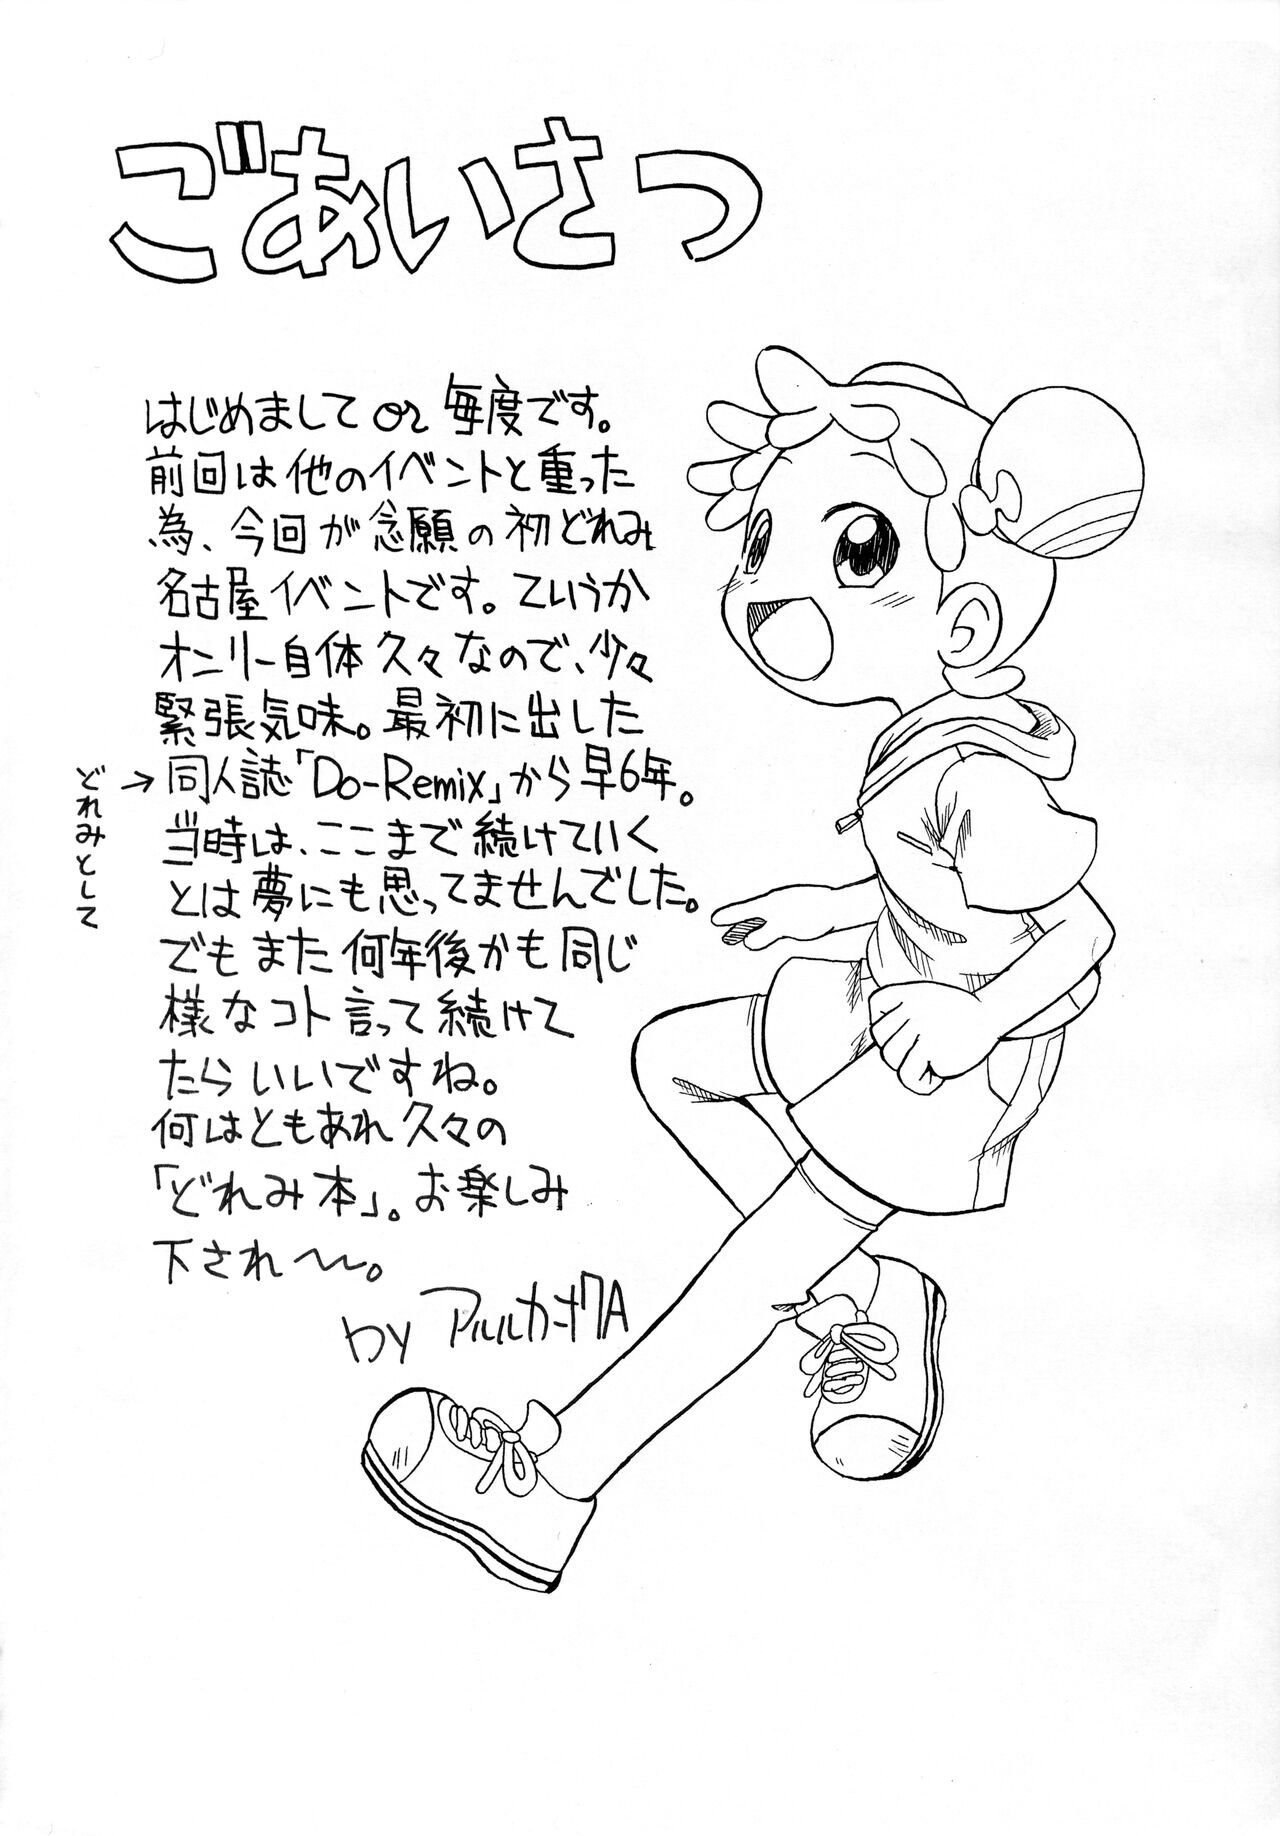 ごあいさつ
はじめまして or 毎度です。
前回は他のイベントと重った
為、今回が念願の初どれみ
名古屋イベントです。ていうか
オンリー自体久々なので、少々
緊張気味。最初に出した
どれみとして→同人誌「Do-Remix」から早6年。
当時は、ここまで続けていく
とは夢にも思ってませんでした。
でもまた何年後かも同じ
様なコト言って続けて
たらいいですね。
何はともあれ久々の
「どれみ本」。お楽しみ
下され〜〜。
by アルルカ